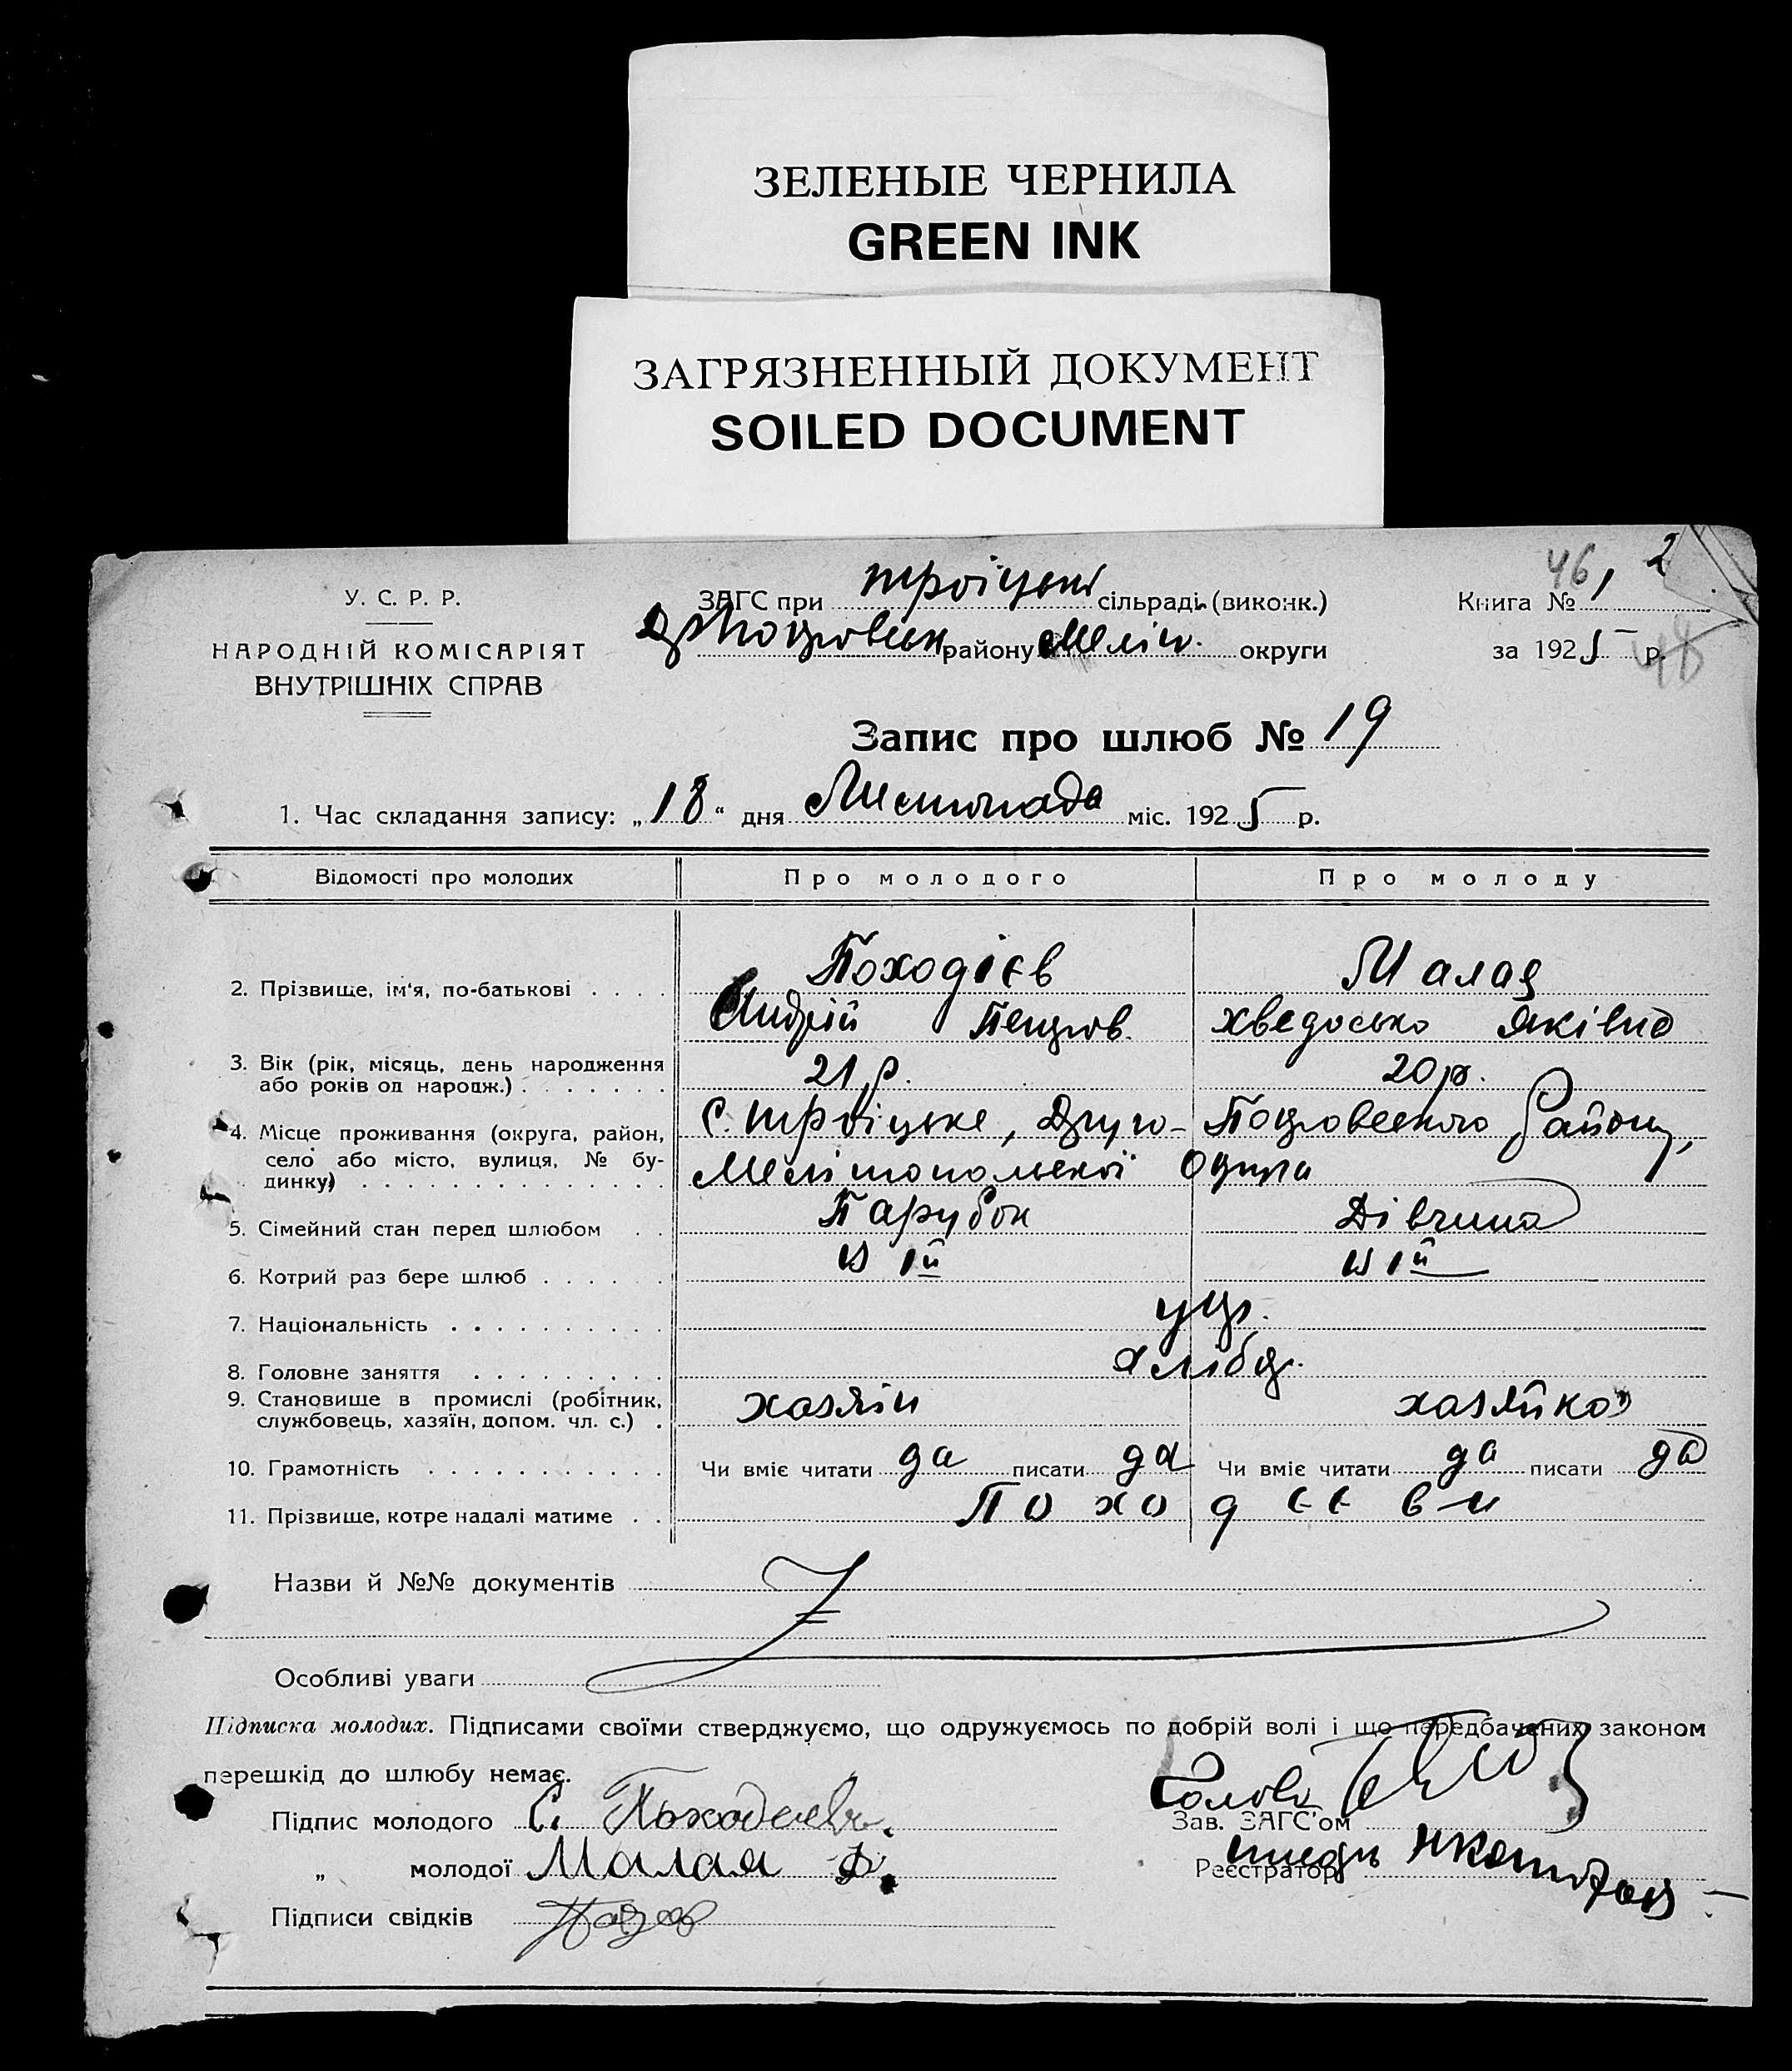 ЗЕЛЕНЫЕ ЧЕРНИЛА
GREEN INK
ЗАГРЯЗНЕННЫЙ ДОКУМЕНТ
SOILED DOCUMENT
46 2
У. С. Р. Р.
НАРОДНІЙ КОМІСАРІЯТ
ВНУТРІШНІХ СПРАВ
ЗАГС при троіцькі сільраді (виконк.)
району Меліт. округи
Книга № 1
за 1925 р.
48
Запис про шлюб № 19
1. Час складання запису: „18“ дня Листопада міс. 1925 р.
Відомості про молодих Про молодого Про молоду
2. Прізвище, ім'я, по-батькові . . . . Походієв Малая
Андрій Петров. Хведосько Яківно
3. Вік (рік, місяць, день народження
або років од народж.) . . . . . . . 21 р. 20 р.
4. Місце проживання (округа, район,
село або місто, вулиця, № бу-
динку) . . . . . . . . . . . . . .
с. троіцьке, Друго- Покровського Району,
Мелітопольскої Округа
5. Сімейний стан перед шлюбом . . Парубок Дівчина
6. Котрий раз бере шлюб . . . . . . В 1й В 1й
7. Національність . . . . . . . . . . укр.
8. Головне заняття . . . . . . . . . хлібор.
9. Становище в промислі (робітник,
службовець, хазяїн, допом. чл. с.) . хозяїн хазяйко
10. Грамотність . . . . . . . . . . . Чи вміє читати да писати да Чи вміє читати да писати да
11. Прізвище, котре надалі матиме . . Походєєв-и
Назви й №№ документів
Особливі уваги
Підписка молодих. Підписами своїми стверджуємо, що одружуємось по добрій волі і що передбачених законом
перешкід до шлюбу немає.
Підпис молодого Походеевъ.
„ молодої Малая Ф.
Підписи свідків
Голова
Зав. ЗАГС'ом
Реєстратор